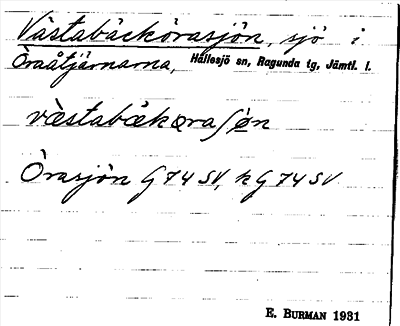 Västabäckörasjön, sjö i
Öraåtjärnarna, Hällesjö sn, Ragunda tg, Jämtl. l.
Örasjön G 74 SV, k G 74 SV
E. Burman 1931